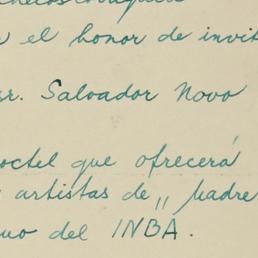 el honor de invit
sr. Salvador Novo
octel que ofrecerá
artistas de „ padre
uo del INBA.